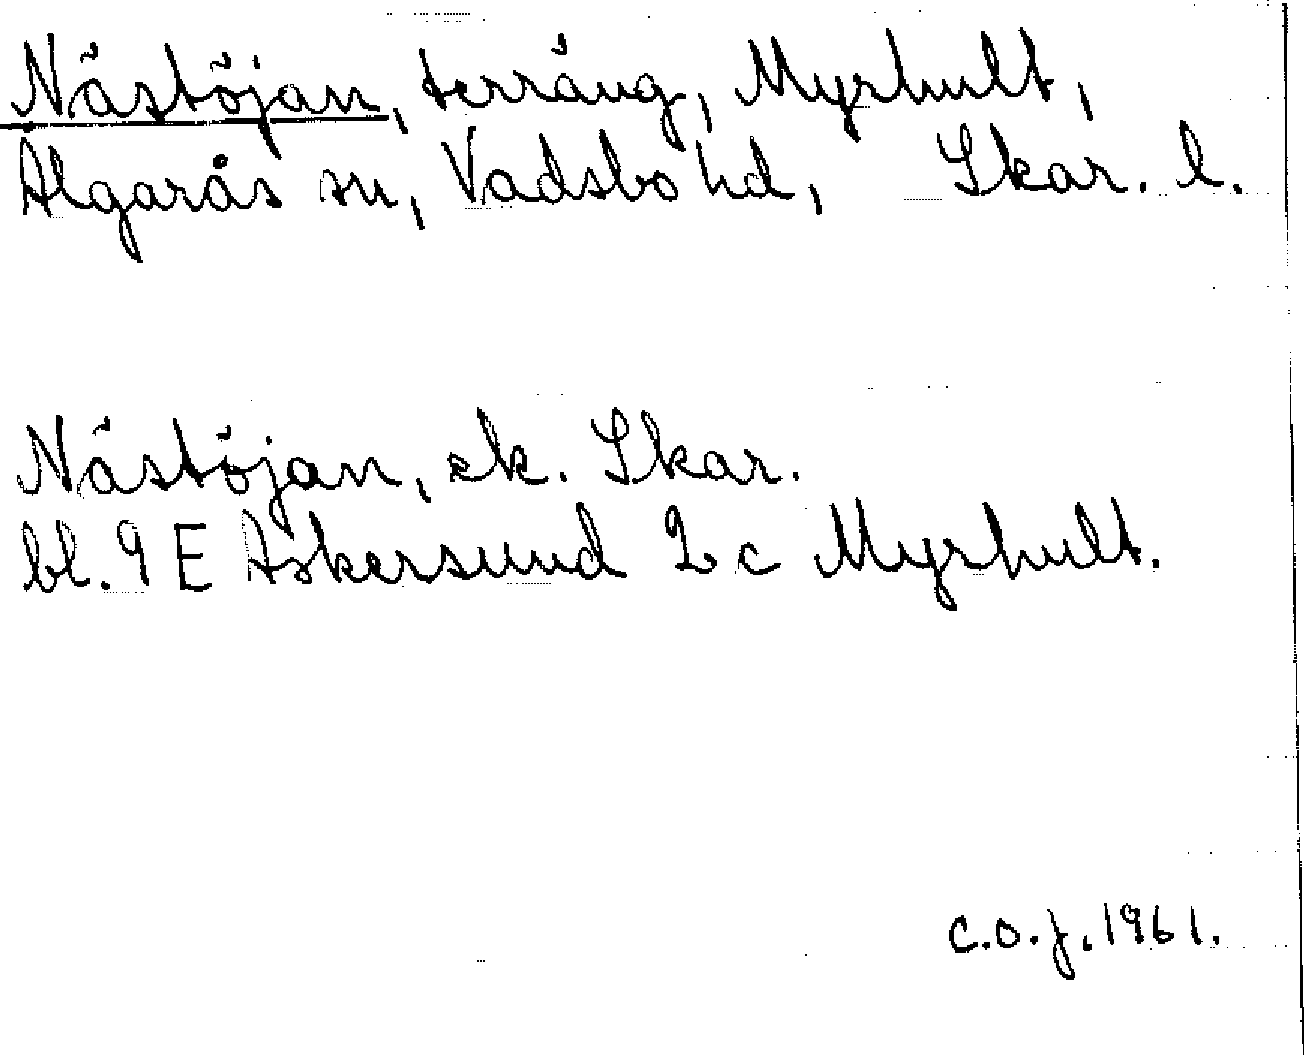 Nästöjan, terräng, Myrhult,
Älgarås sn, Vadsbo hd, Skar. l.
Nästöjan, ek. Skar.
bl. 9 E Askersund 2 c Myrhult.
C.O.J. 1961.